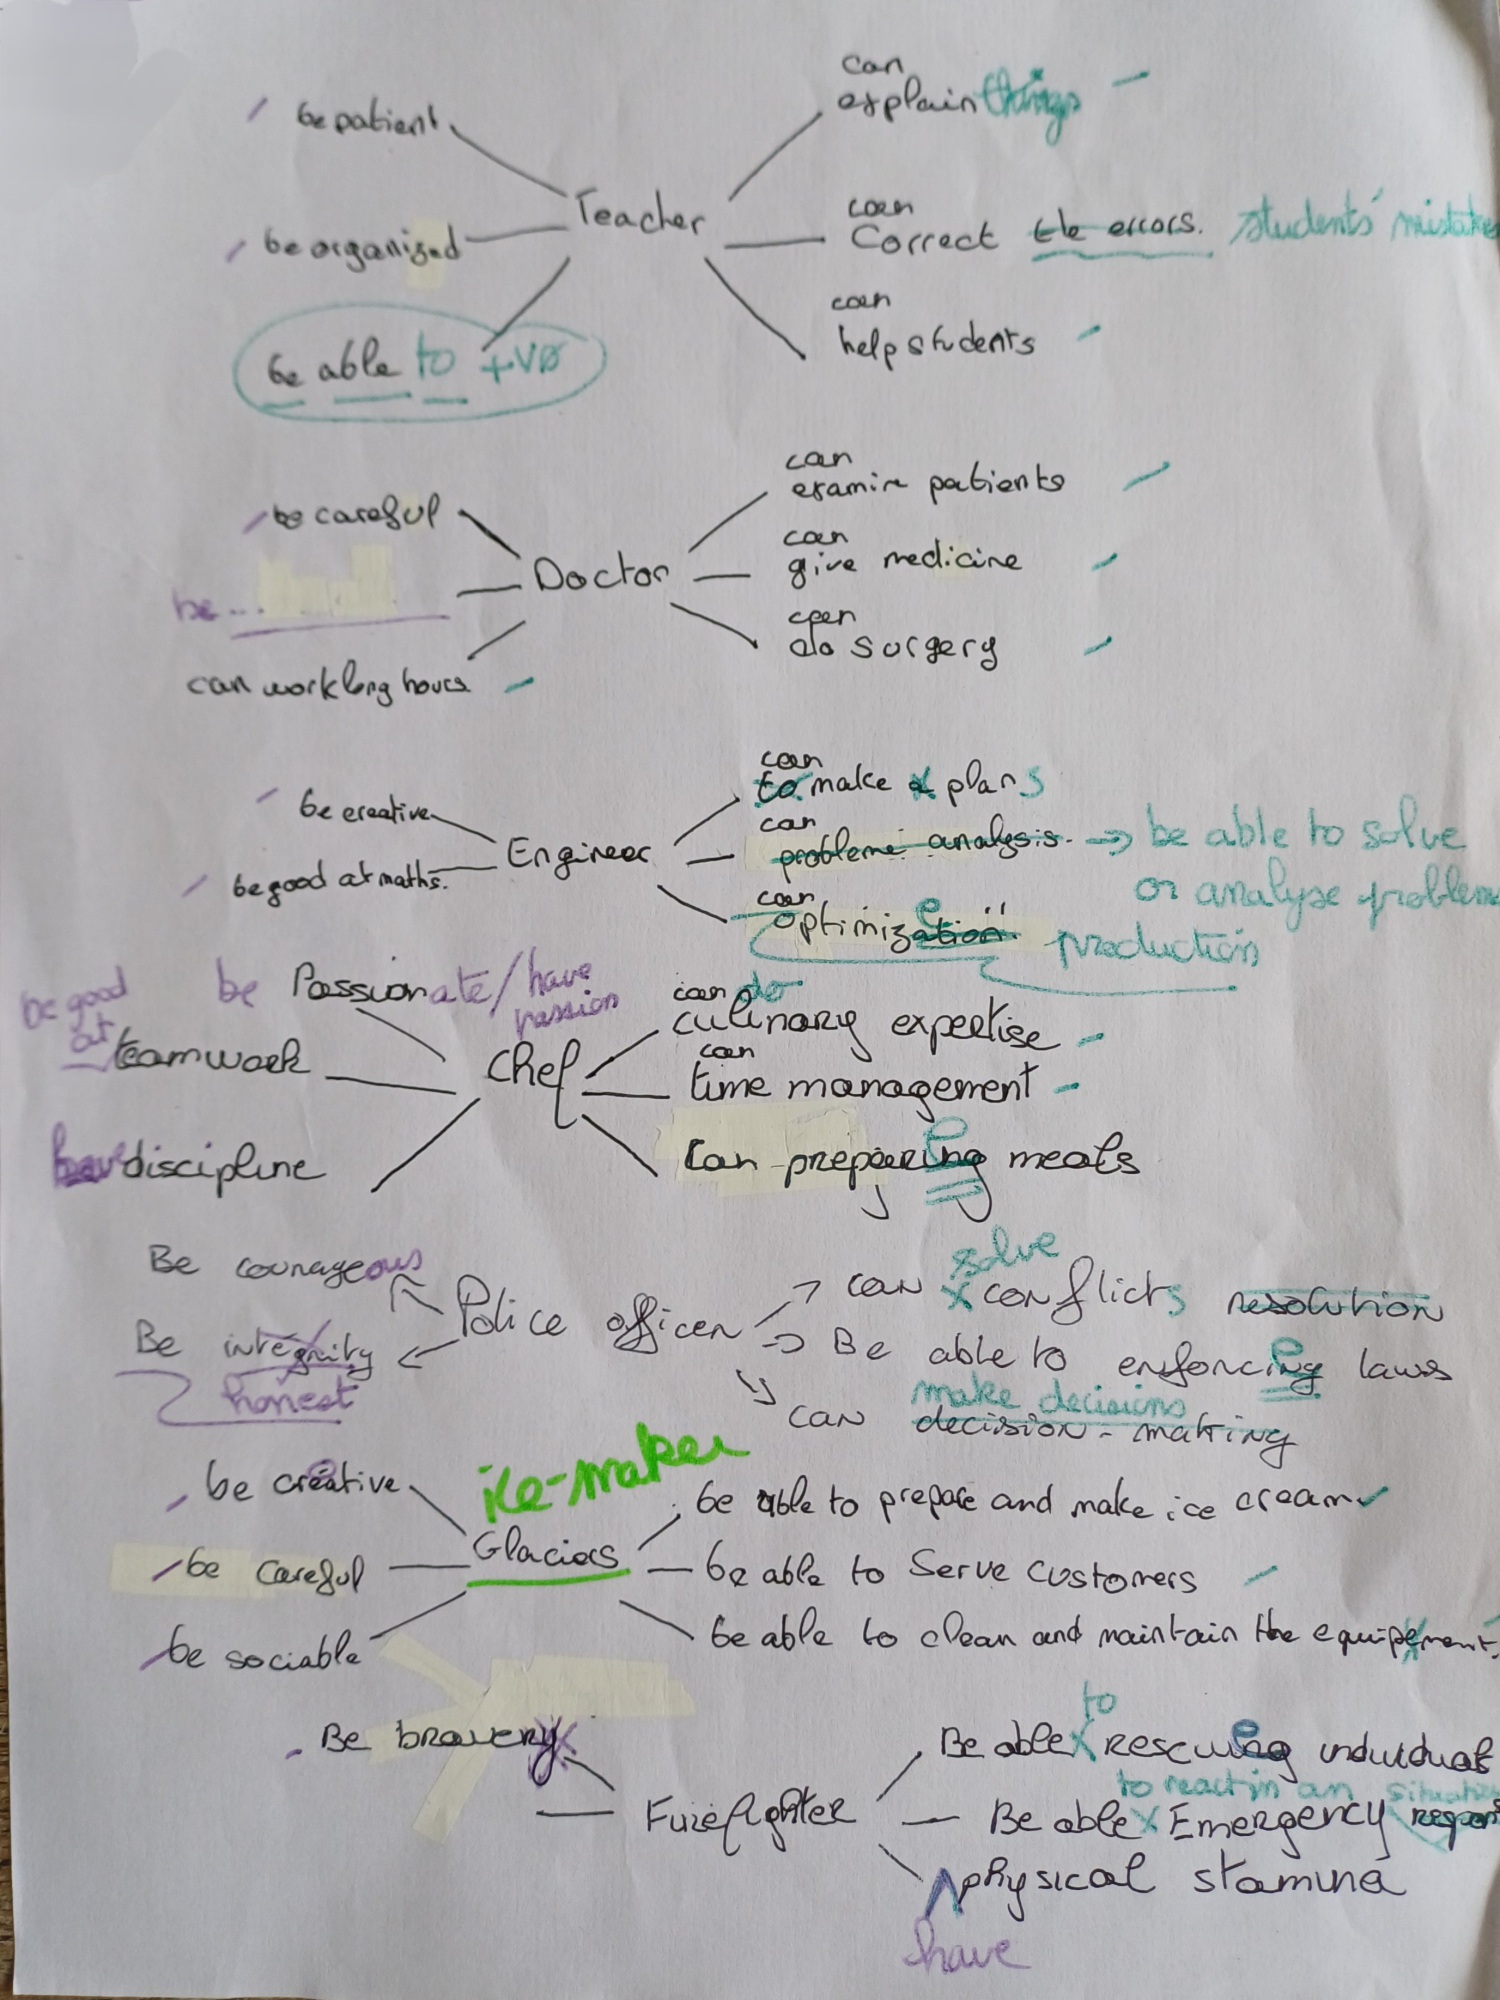 can
explain things
be patient
Teacher
can
Correct the errors. students' mistakes
be organized
can
help students
be able to +VØ
can
examine patients
be careful
can
give medicine
Doctor
be ...
can
do surgery
can work long hours
can
to make a plans
be creative
can
probleme analysis. → be able to solve
or analyse problem
Engineer
be good at maths.
can
optimization e
production
be Passionate / have
passion
be good
at teamwork
can do
culinary expertise
Chef
can
time management
have discipline
Can prepearing e meals
Be courageous
solve
can conflicts resolution
Police officer
Be integrity
honest
Be able to enforcing e laws
make decisions
can decision-making
ice-maker
be creative
be able to prepare and make ice cream
Glaciers
be careful
be able to Serve customers
be sociable
be able to clean and maintain the equipement.
to
Be bravery
Be able rescuing e individuals
Firefighter
to react in an situation
Be able Emergency respons
physical stamina
have